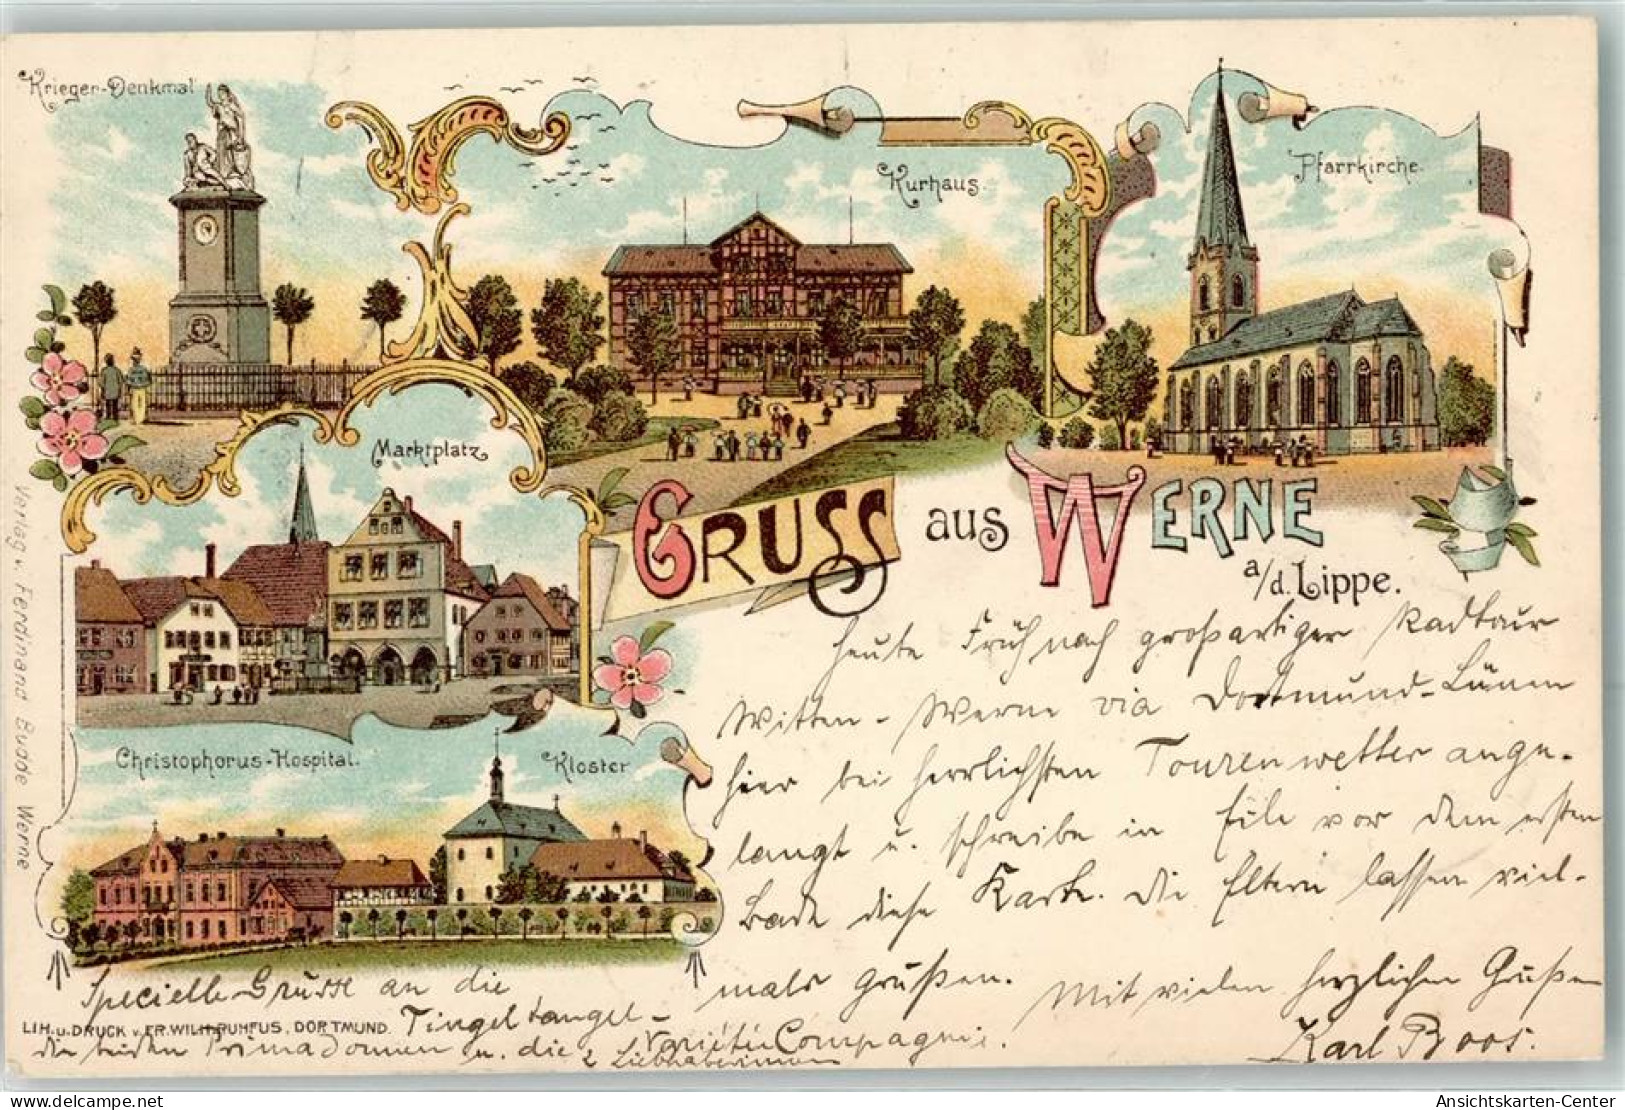 Krieger-Denkmal
Kurhaus.
Pfarrkirche.
Marktplatz
GRUSS aus WERNE
a/d. Lippe.
Christophorus-Hospital.
Kloster
Verlag v. Ferdinand Budde Werne
LIH. u. DRUCK v. FR. WILH. RUHFUS, DORTMUND.
Heute Früh nach großartiger Radtour
Witten - Werne via Dortmund-Lünen
hier bei herrlichsten Tourenwetter ange-
langt u. schreibe in Eile vor dem ersten
Bade diese Karte. Die Eltern lassen viel-
mals grüßen. Mit vielen herzlichen Grüßen
Karl Boos.
Specielle Grüsse an die
Tingeltangel-
Varieté Compagnie.
die beiden Primadonnen u. die 2 Liebhaberinnen
Ansichtskarten-Center.com